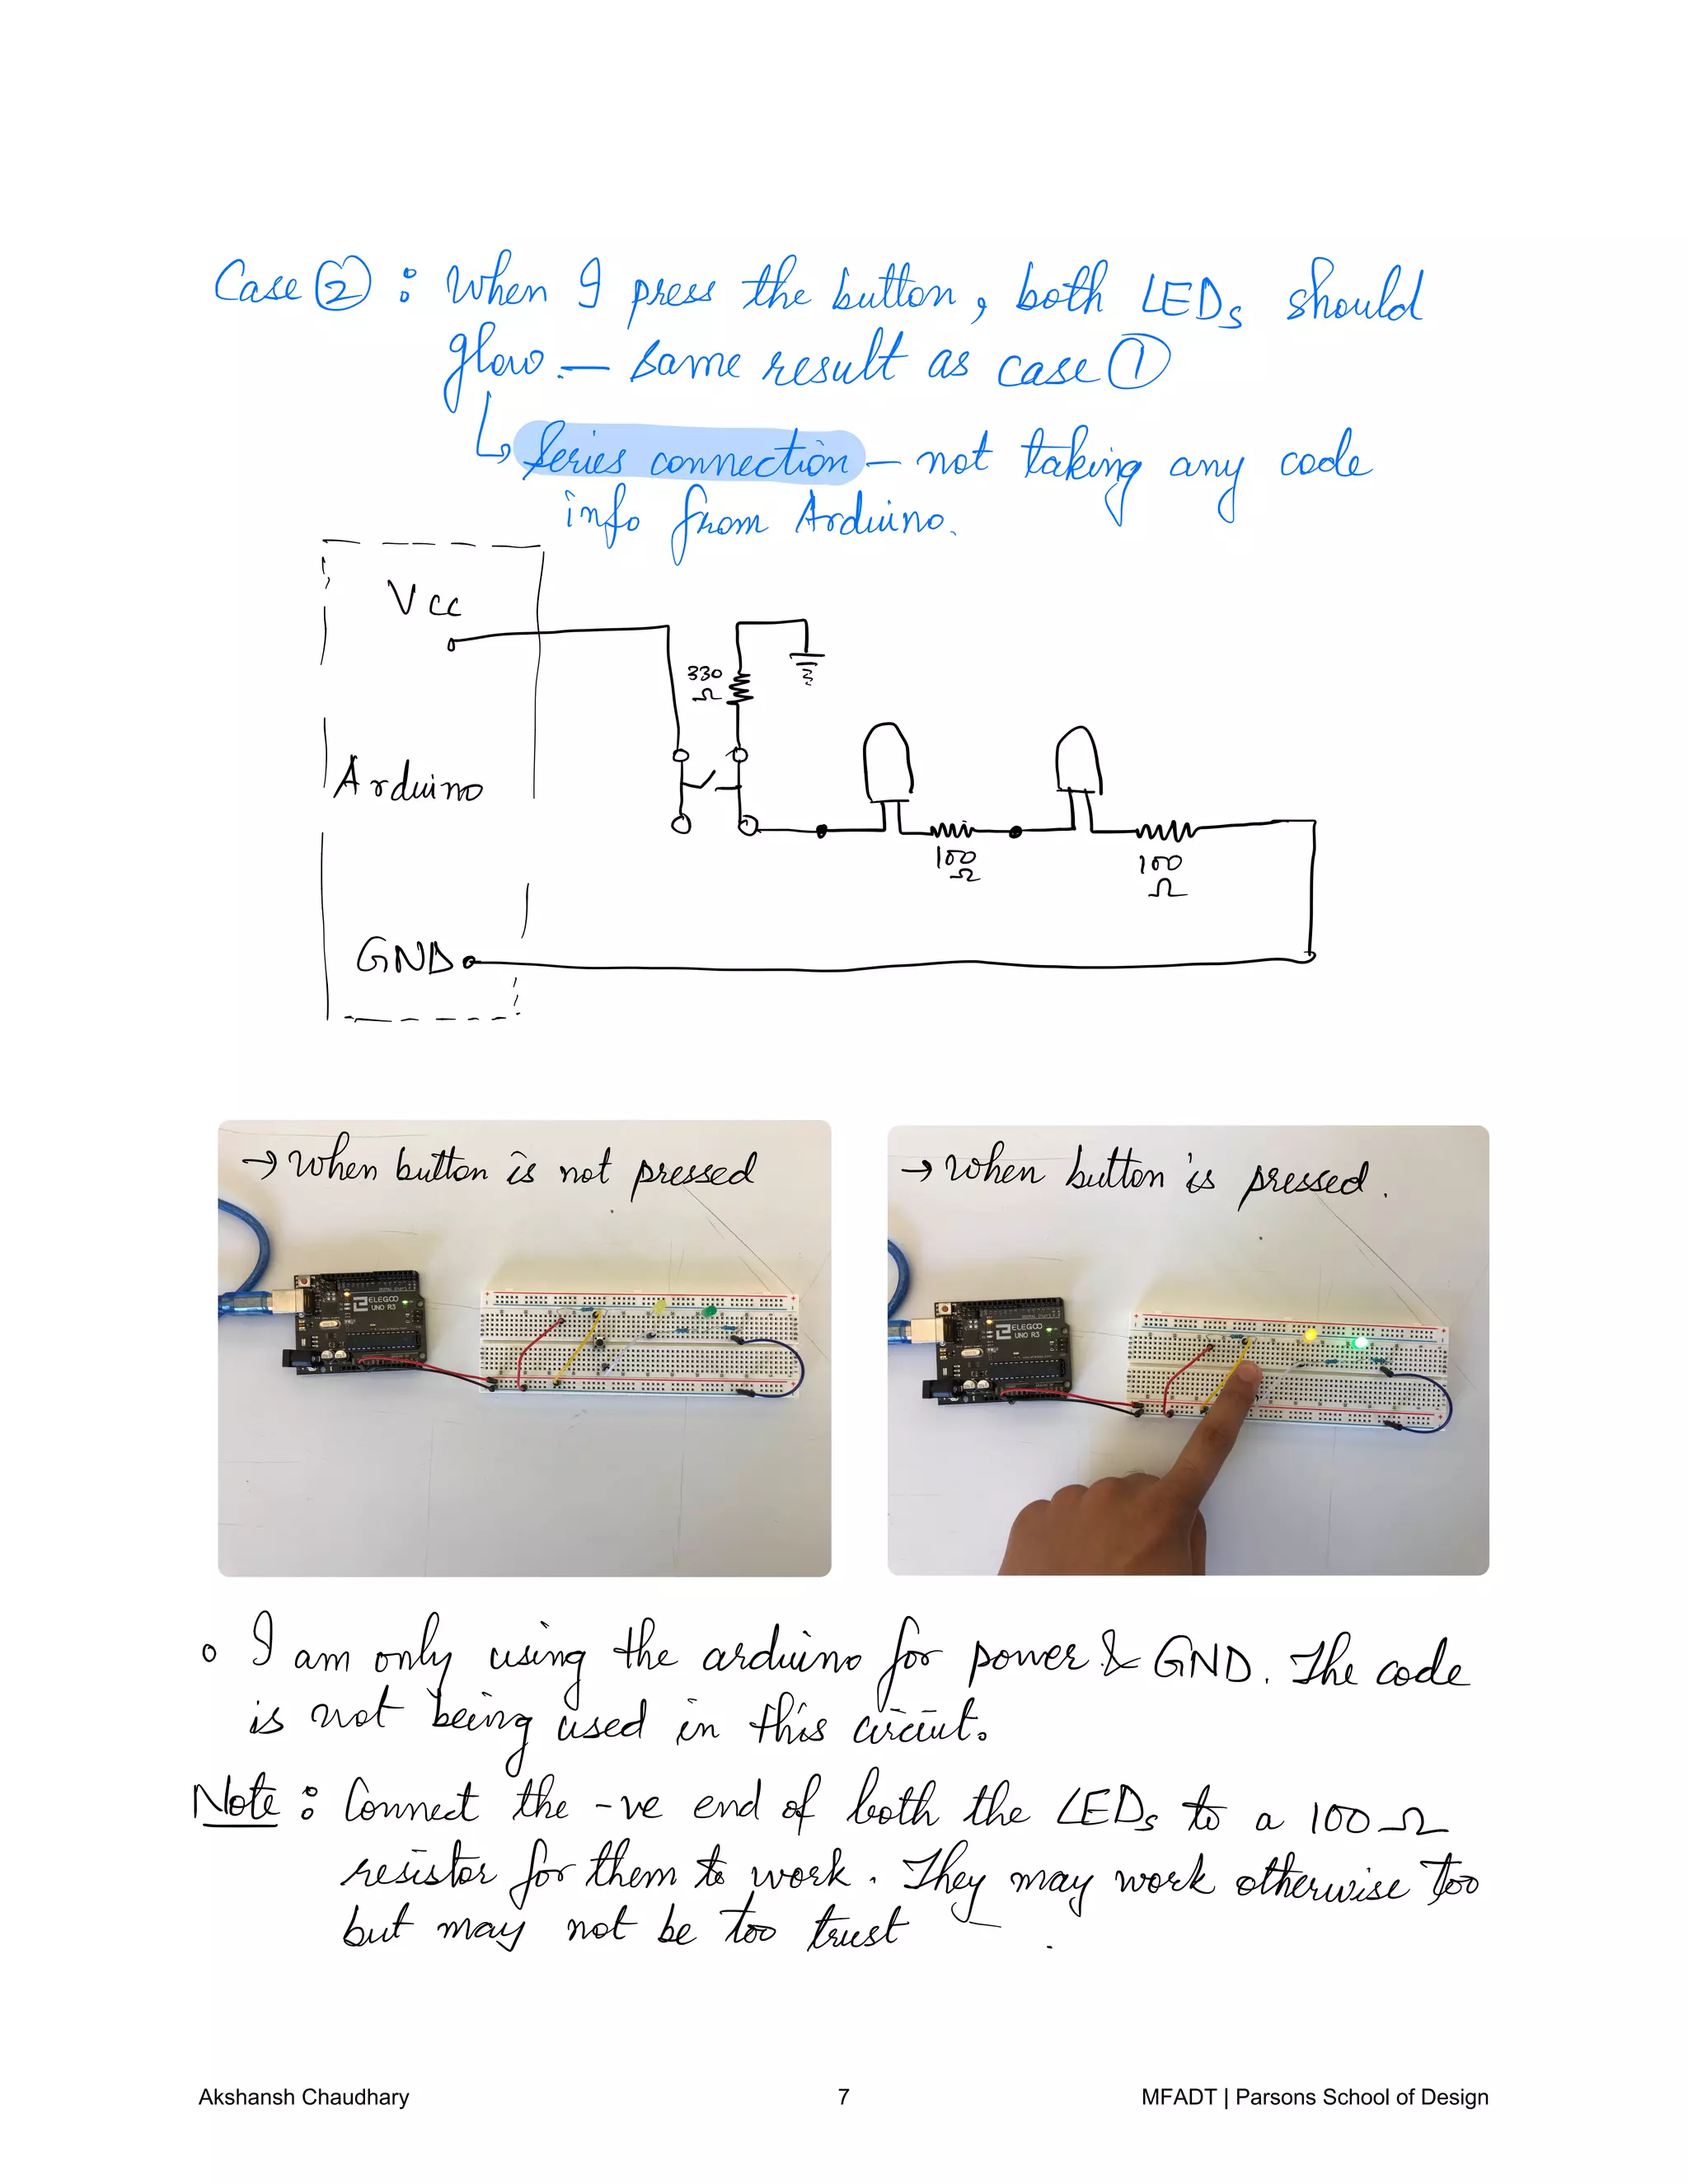 Case ② : When I press the button, both LEDs should
glow. — same result as case ①
↳ Series connection — not taking any code
info from Arduino.
Vcc
330
Ω
Arduino
100
Ω
100
Ω
GND
→ When button is not pressed
→ When button is pressed.
ELEGOO
UNO R3
ELEGOO
UNO R3
o I am only using the arduino for power & GND. The code
is not being used in this circuit.
Note : Connect the -ve end of both the LEDs to a 100 Ω
resistor for them to work. They may work otherwise too
but may not be too trust — .
Akshansh Chaudhary
7
MFADT | Parsons School of Design